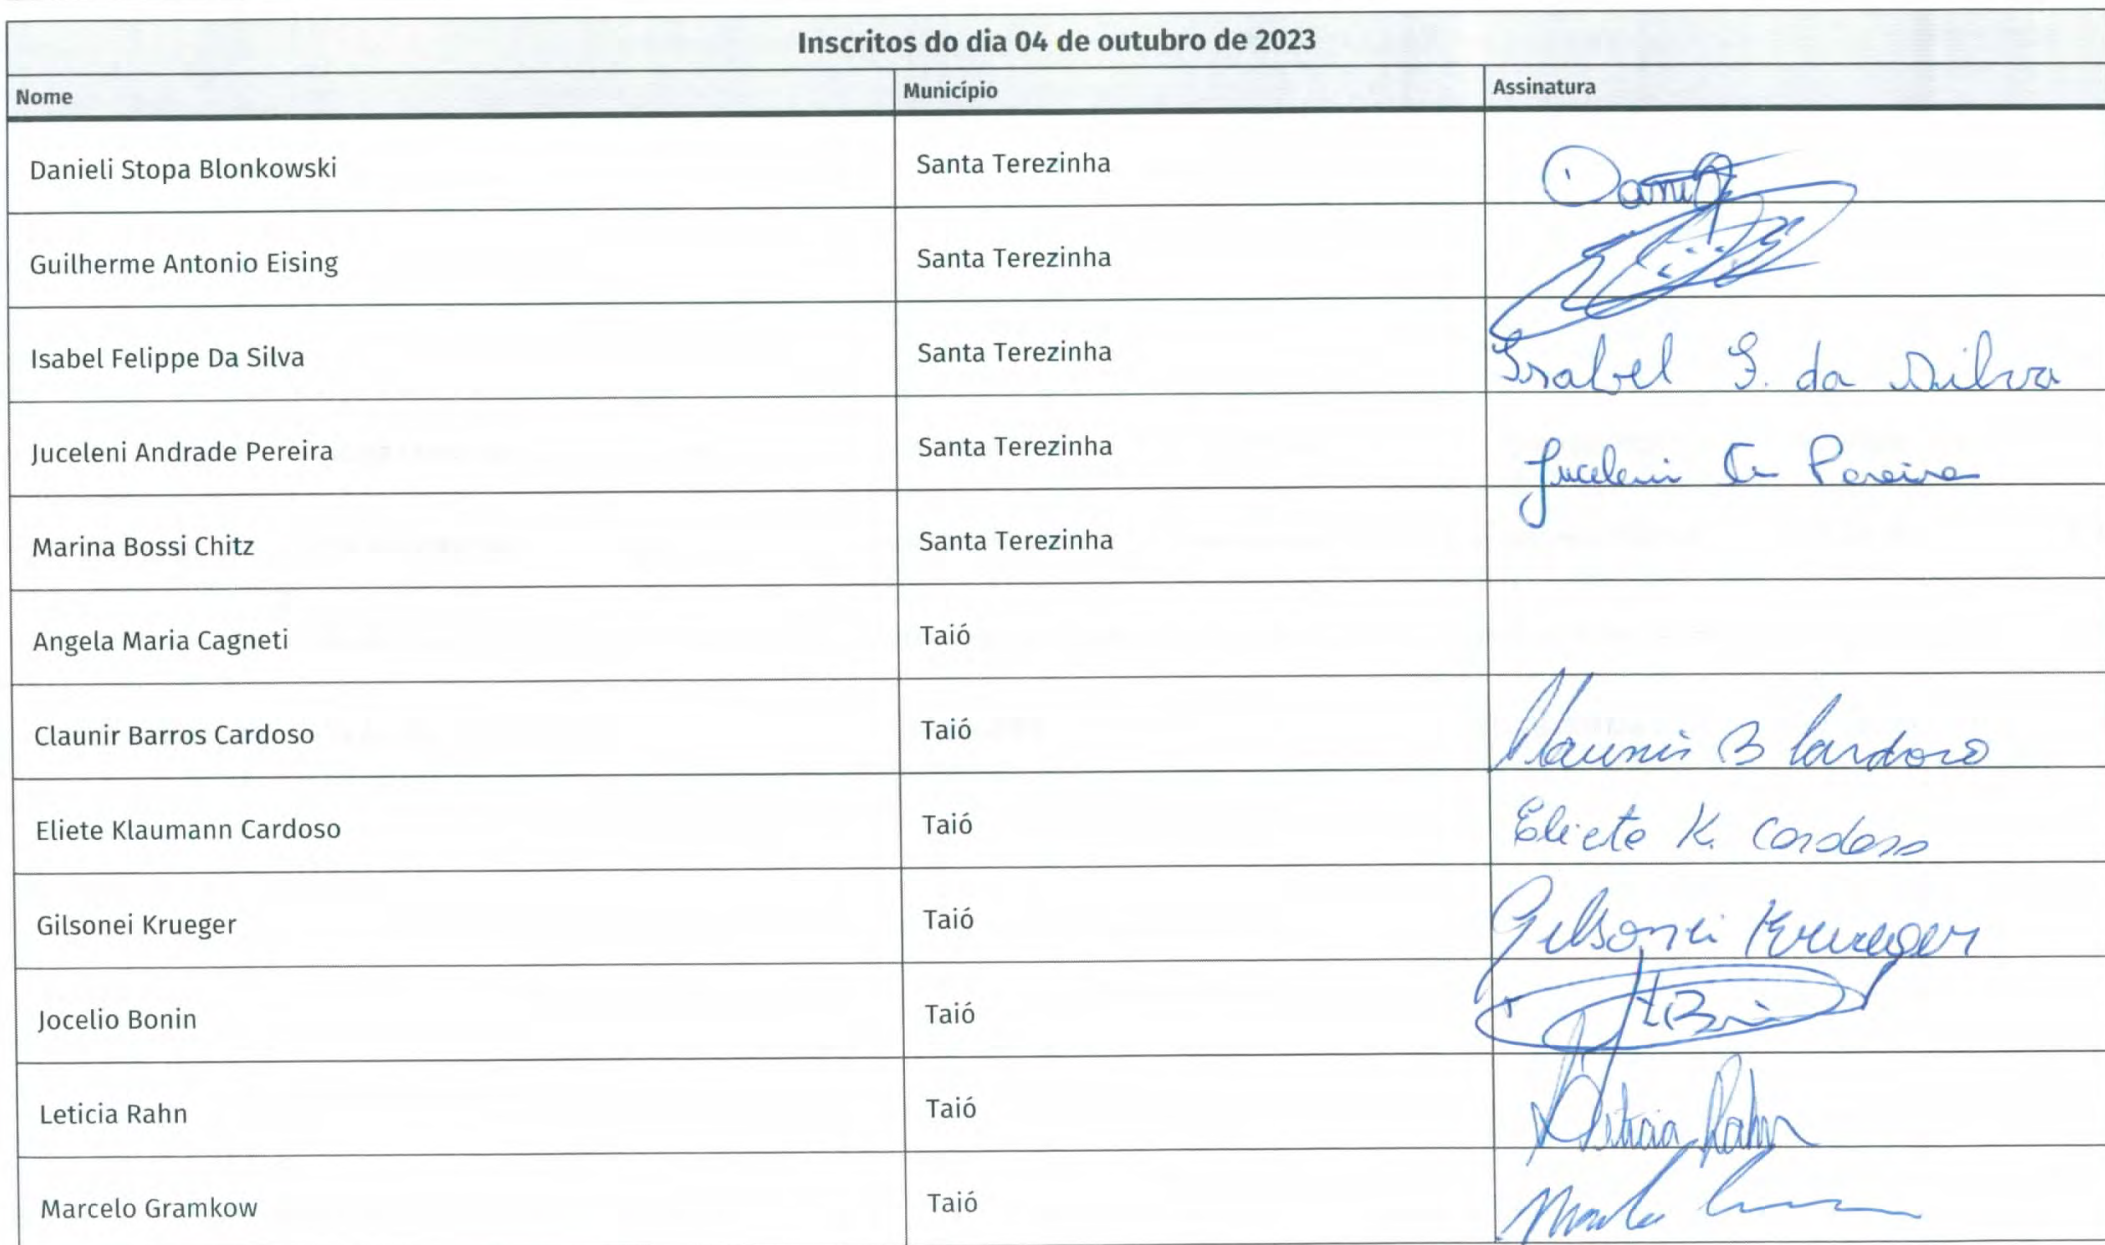 Inscritos do dia 04 de outubro de 2023
Nome Município Assinatura
Danieli Stopa Blonkowski Santa Terezinha
Guilherme Antonio Eising Santa Terezinha
Isabel Felippe Da Silva Santa Terezinha Isabel F. da Silva
Juceleni Andrade Pereira Santa Terezinha Juceleni A Pereira
Marina Bossi Chitz Santa Terezinha
Angela Maria Cagneti Taió
Claunir Barros Cardoso Taió Claunir B Cardoso
Eliete Klaumann Cardoso Taió Eliete K. Cardoso
Gilsonei Krueger Taió Gilsonei Krueger
Jocelio Bonin Taió
Leticia Rahn Taió Leticia Rahn
Marcelo Gramkow Taió